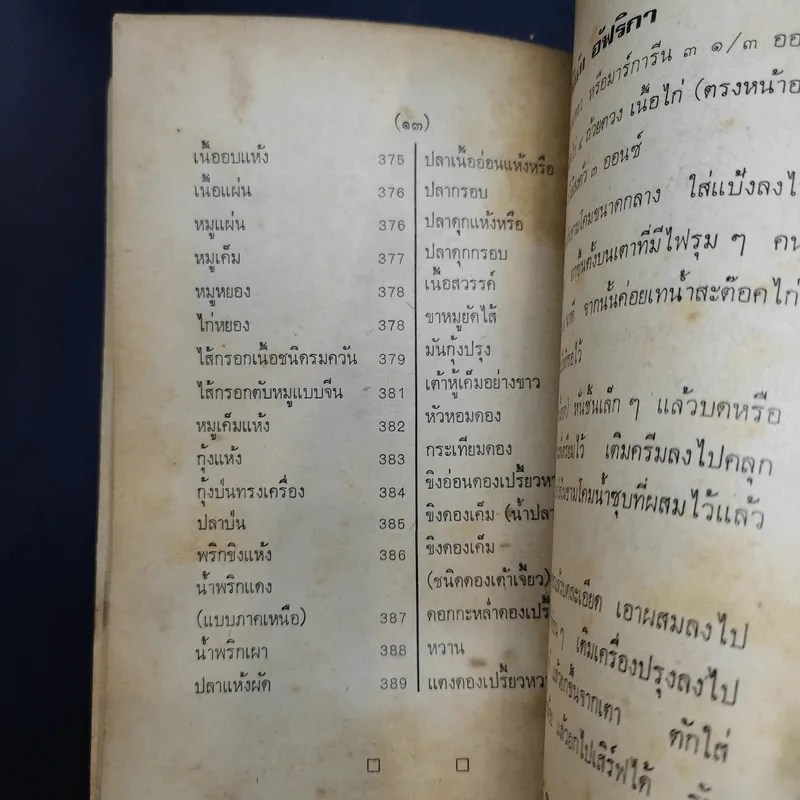 (๑๓)
เนื้ออบแห้ง 375
เนื้อแผ่น 376
หมูแผ่น 376
หมูเค็ม 377
หมูหยอง 378
ไก่หยอง 378
ไส้กรอกเนื้อชนิดรมควัน 379
ไส้กรอกตับหมูแบบจีน 381
หมูเค็มแห้ง 382
กุ้งแห้ง 383
กุ้งป่นทรงเครื่อง 384
ปลาป่น 385
พริกขิงแห้ง 386
น้ำพริกแดง
(แบบภาคเหนือ) 387
น้ำพริกเผา 388
ปลาแห้งผัด 389
ปลาเนื้ออ่อนแห้งหรือ
ปลากรอบ
ปลาดุกแห้งหรือ
ปลาดุกกรอบ
เนื้อสวรรค์
ขาหมูยัดไส้
มันกุ้งปรุง
เต้าหู้เค็มอย่างขาว
หัวหอมดอง
กระเทียมดอง
ขิงอ่อนดองเปรี้ยวหวา
ขิงดองเค็ม (น้ำปลา
ขิงดองเค็ม
(ชนิดดองเต้าเจี้ยว)
ดอกกะหล่ำดองเปรี้
หวาน
แตงดองเปรี้ยวหวา
อัฟริกา
หรือมาร์การีน ๓ ๑/๓ ออ
ถ้วยตวง เนื้อไก่ (ตรงหน้าอ
๓ ออนซ์
ขนาดกลาง ใส่แป้งลงไ
ตั้งบนเตาที่มีไฟรุม ๆ คน
จากนั้นค่อยเทน้ำสะต๊อคไก่
หั่นชิ้นเล็ก ๆ แล้วบดหรือ
ไว้ เติมครีมลงไปคลุก
น้ำซุบที่ผสมไว้แล้ว
เอาผสมลงไป
ๆ เติมเครื่องปรุงลงไป
ขึ้นจากเตา ตักใส่
แล้วยกไปเสิร์ฟได้